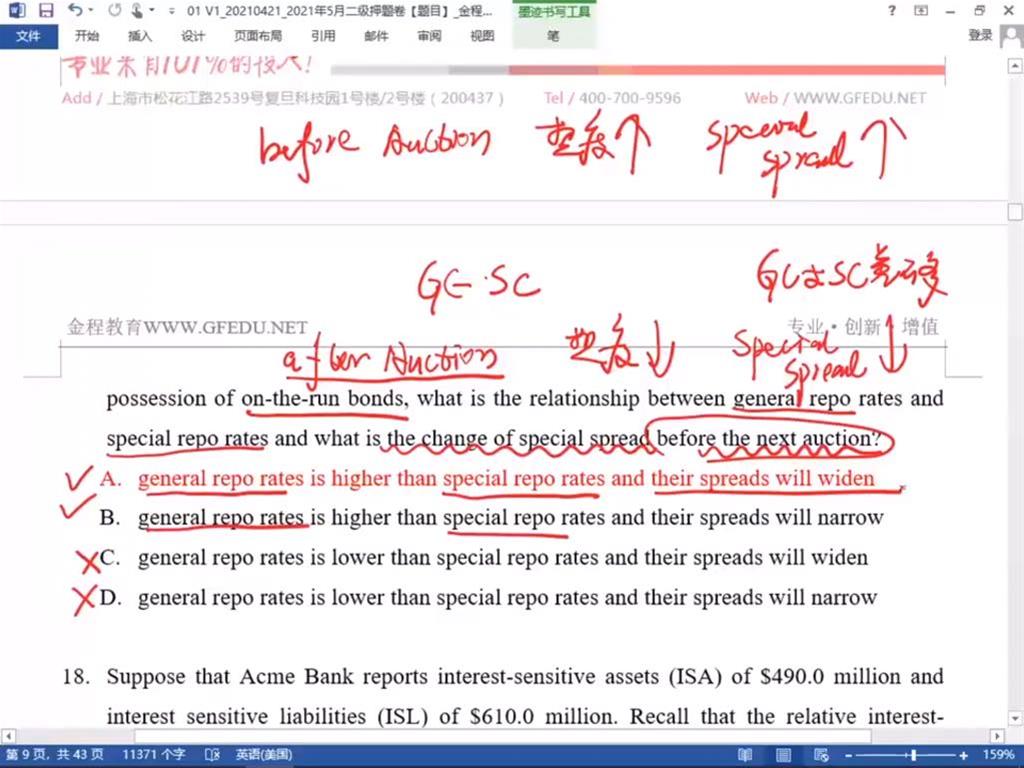 01 V1_20210421_2021年5月二级押题卷【题目】_金程...
墨迹书写工具
文件 开始 插入 设计 页面布局 引用 邮件 审阅 视图 笔 登录
专业来自101%的投入!
Add / 上海市松花江路2539号复旦科技园1号楼/2号楼（200437） Tel / 400-700-9596 Web / WWW.GFEDU.NET
before Auction 热度↑ special
spread ↑
GC - SC
GC与SC
金程教育WWW.GFEDU.NET 专业·创新·增值
after Auction 热度↓ Special
Spread ↓
possession of on-the-run bonds, what is the relationship between general repo rates and
special repo rates and what is the change of special spread before the next auction?
A. general repo rates is higher than special repo rates and their spreads will widen
B. general repo rates is higher than special repo rates and their spreads will narrow
C. general repo rates is lower than special repo rates and their spreads will widen
D. general repo rates is lower than special repo rates and their spreads will narrow
18. Suppose that Acme Bank reports interest-sensitive assets (ISA) of $490.0 million and
interest sensitive liabilities (ISL) of $610.0 million. Recall that the relative interest-
第 9 页，共 43 页 11371 个字 英语(美国) 159%